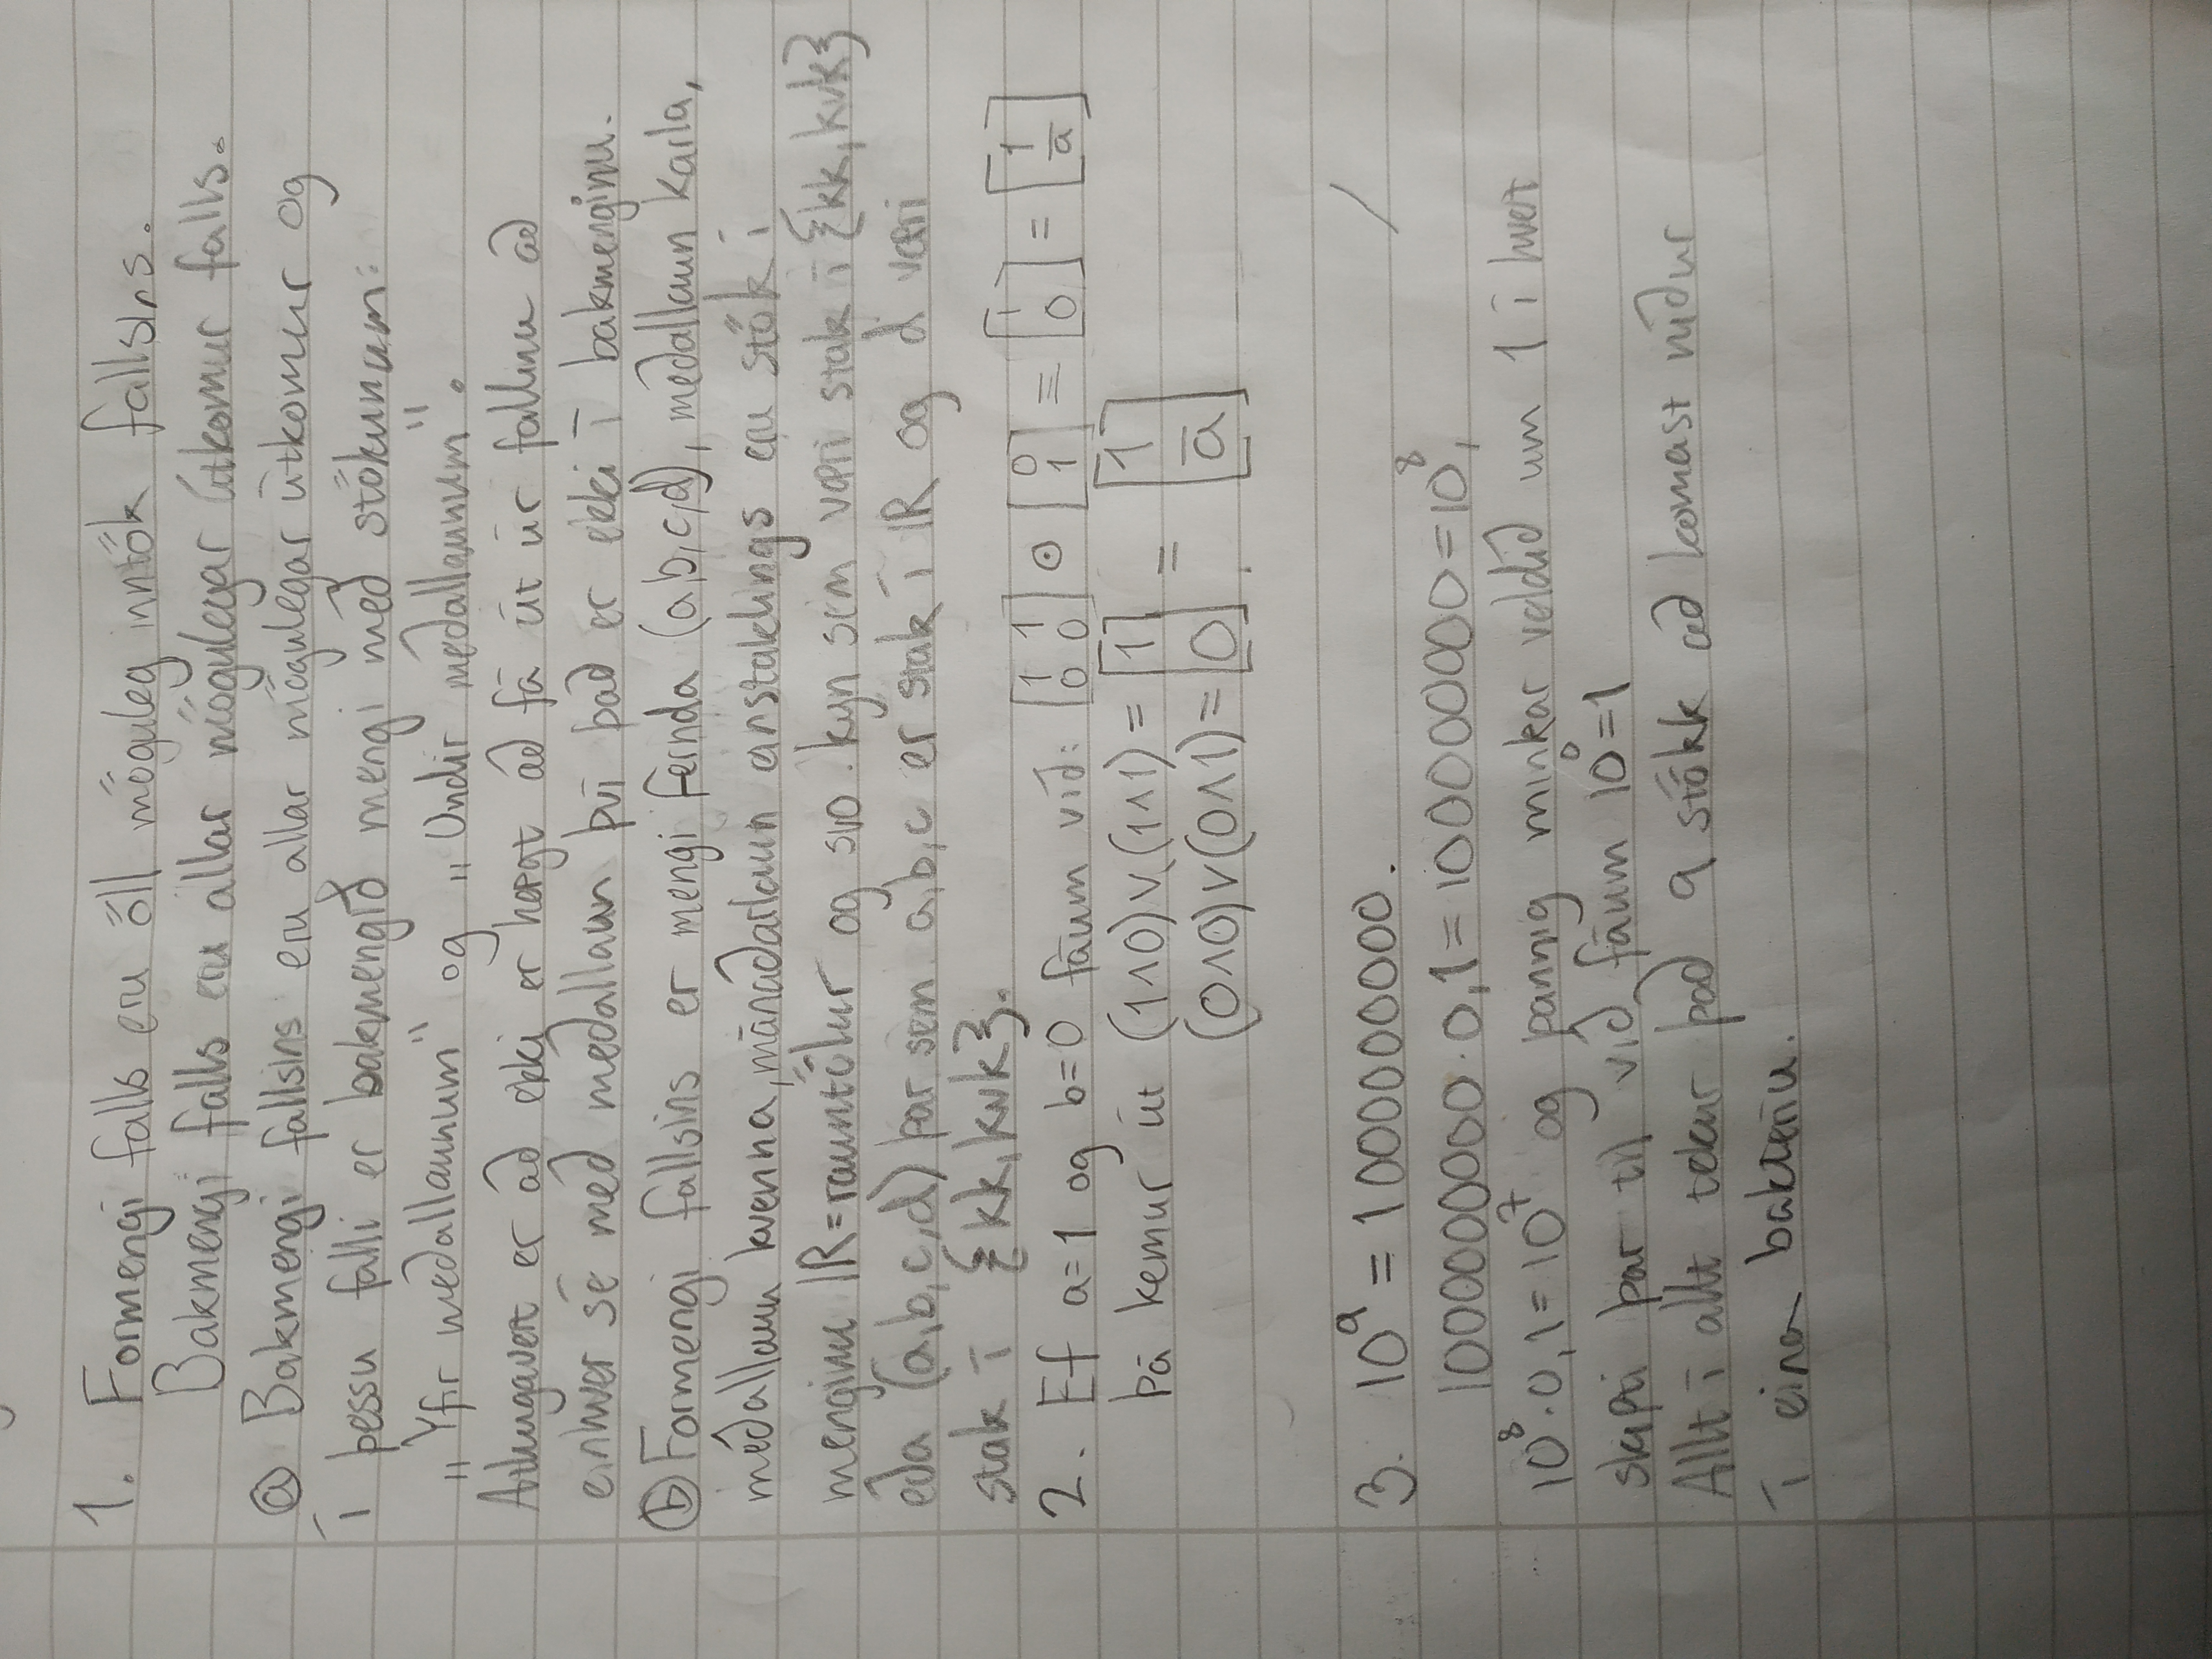 1. Formengi falls eru öll möguleg inntök fallsins.
Bakmengi falls eru allar mögulegar útkomur falls.
ⓐ Bakmengi fallsins eru allar mögulegar útkomur og
í þessu falli er bakmengið mengi með stökunum:
„Yfir meðallaunum“ og „Undir meðallaunum“.
Athugavert er að ekki er hægt að fá út úr fallinu að
einhver sé með meðallaun því það er ekki í bakmenginu.
ⓑ Formengi fallsins er mengi fernda (a,b,c,d), meðallaun karla,
meðallaun kvenna, mánaðarlaun einstaklings eru stök í
menginu ℝ=rauntölur og svo kyn sem væri stak í {kk, kvk}
eða (a,b,c,d) þar sem a,b,c er stak í ℝ og d væri
stak í {kk, kvk}.
2. Ef a=1 og b=0 fáum við: [1 1; 0 0] ⊙ [0; 1] = [1; 0] = [1; a̅]
Þá kemur út (1∧0)∨(1∧1) = [1 = [1
(0∧0)∨(0∧1) = 0] . a̅]
3. 10⁹ = 1000000000.
1000000000 · 0,1 = 100000000 = 10⁸,
10⁸ · 0,1 = 10⁷ og þannig minkar veldið um 1 í hvert
skipti þar til við fáum 10⁰ = 1
Allt í allt tekur það 9 stökk að komast niður
í eina bakteríu.